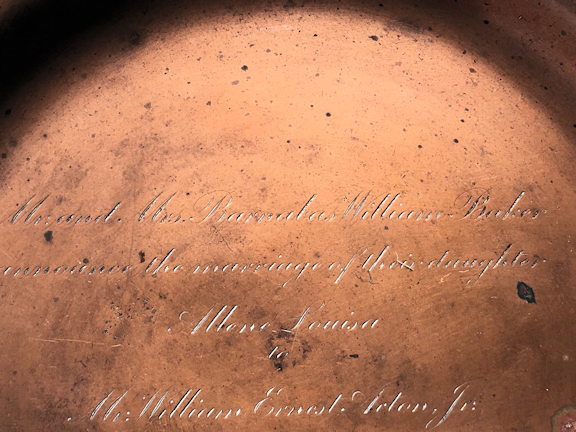 Mr. and. Mrs. Barnabas William Baker
announce the marriage of their daughter
Allene Louisa
to
Mr. William Ernest Acton, Jr.